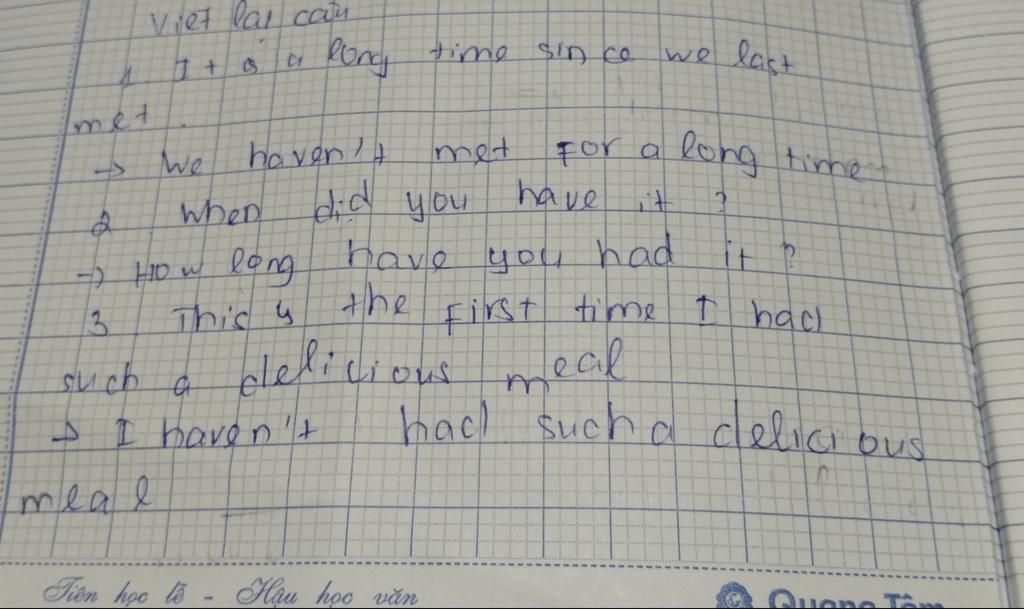 Viết lại câu
1 It s a long time since we last
met.
→ We haven't met for a long time
2 When did you have it ?
→ How long have you had it ?
3 This is the first time I had
such a delicious meal
→ I haven't had such a delicious
meal
Tiên học lễ - Hậu học văn
Quang Tâm